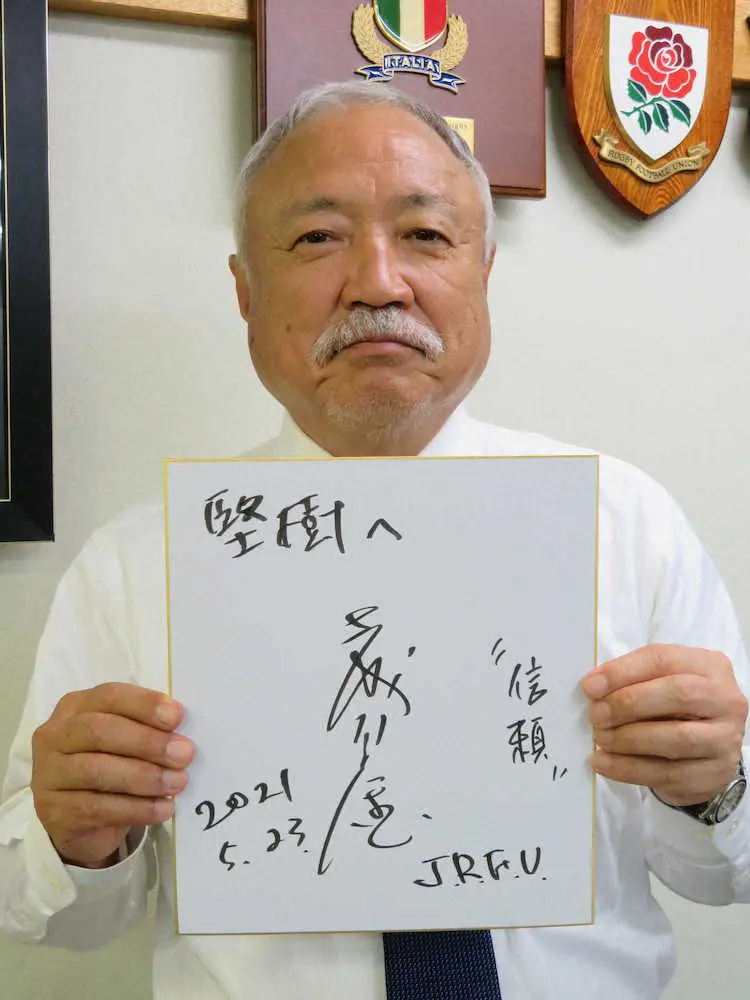 ITALIA
RUGBY FOOTBALL UNION
堅樹へ
“信頼”
2021
5.23.
J.R.F.U.